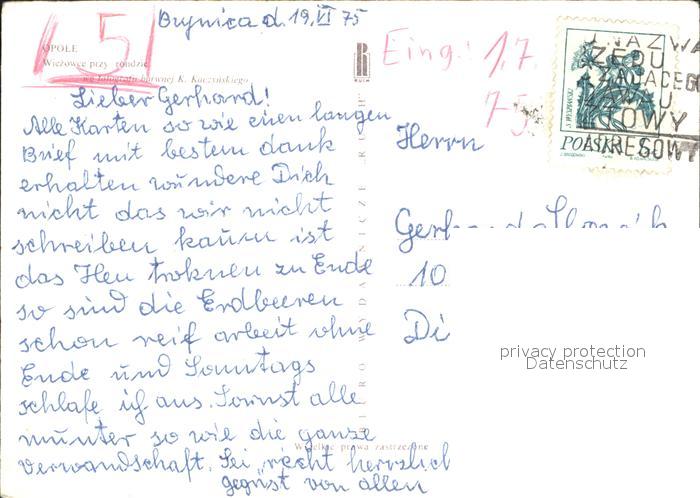 Bujnica d. 19.VI 75
(5)
OPOLE
Wieżowce przy rondzie
wg fotografii barwnej K. Kaczyńskiego
Eing.: 1.7.
75
Lieber Gerhard!
Alle Karten so wie einen langen
Brief mit bestem dank
erhalten wundere Dich
nicht das wir nicht
schreiben kaum ist
das Heu troknen zu Ende
so sind die Erdbeeren
schon reif arbeit ohne
Ende und Sonntags
schlafe ich aus. Sonnst alle
munter so wie die ganze
verwandschaft. Sei recht herzlich
gegrüst von allen
BIURO WYDAWNICZE RUCH
Wszelkie prawa zastrzeżone
POLSKA
NAZWA
ADRESOWY
Herrn
Gerhard
10
Di
privacy protection
Datenschutz